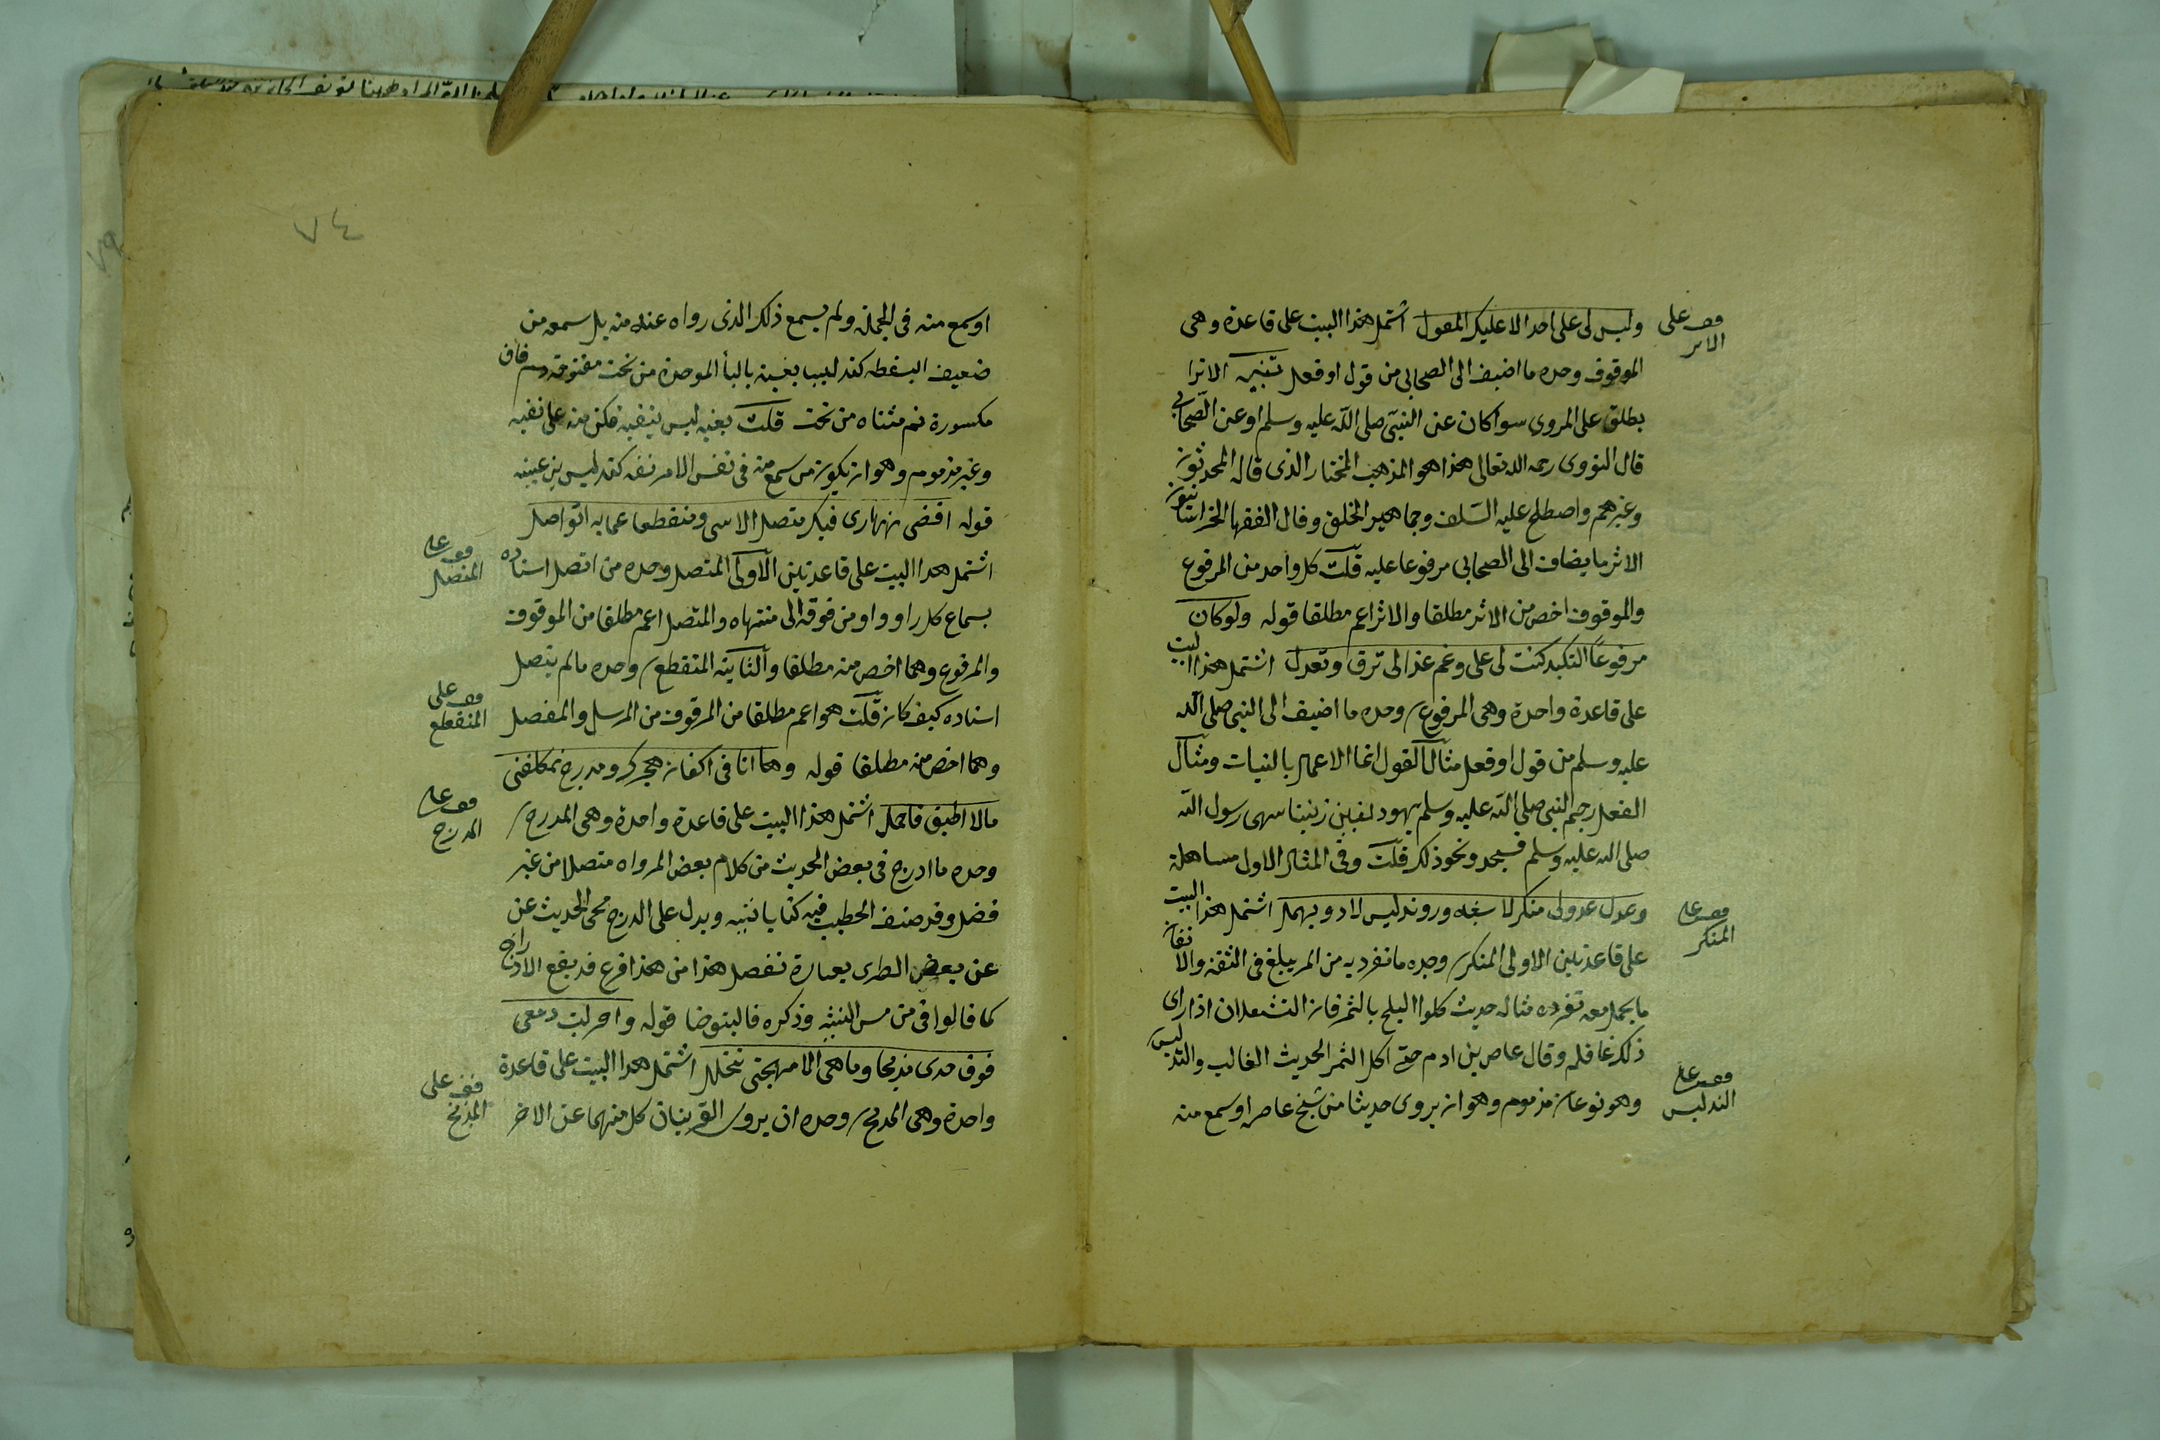 وليس لى على احد الا عليك المعول اشتمل هذا البيت على قاعدة وهى
الموقوف وحده ما اضيف الى الصحابى من قول او فعل تنبيه الاثرا
يطلق على المروى سوا كان عن النبى صلى الله عليه وسلم او عن الصحابى
قال النووى رحمه الله تعالى هذا هو المذهب المختار الذى قاله المحدثون
وغيرهم واصطلح عليه السلف وجماهير الخلق وقال الفقها الخراسانيون
الاثر ما يضاف الى الصحابى مرفوعا عليه قلت كل واحد من المرفوع
والموقوف اخص من الاثر مطلقا والاثر اعم مطلقا قوله ولو كان
مرفوعا اليك لكنت لى على رغم عذالى ترق وتعدل اشتمل هذا البيت
على قاعدة واحدة وهى المرفوع وحده ما اضيف الى النبى صلى الله
عليه وسلم من قول او فعل مثال القول انما الاعمال بالنيات ومثال
الفعل رجم النبى صلى الله عليه وسلم يهود زنيا سهى رسول الله
صلى الله عليه وسلم فسجد ونحو ذلك قلت وفى المثال الاول مساهلة
وعدل عدولى منكر لا وزور وتدليس يرد ويهمل اشتمل هذا البيت
على قاعدتين الاولى المنكر وحده ما تفرد به من لم يبلغ فى الثقة والاتقان
ما يحمل معه تفرده مثاله حديث كلوا البلح بالتمر فان الشيطان اذا راى
ذلك غاظه وقال عاش بن ادم حتى اكل التمر الحديث الغالب والتدليس
وهو نوعان مذموم وهو ان يروى حديثا من شيخ عاصر او سمع منه
وقف على
الاثر
وقف على
المنكر
وقف على
التدليس
٧٤
او سمع منه فى الجملة ولم يسمع ذلك الذى رواه عنه منه بل سمعه من
ضعيف بالبا الموحدة من تحت مفتوحة ثم قاف
مكسورة ثم مثناه من تحت قلت
وغير مذموم وهو ان يكون من سمع منه فى نفس الامر ثقه كتدليس بن عيينه
قوله اقضى نهارى فيك متصل الاسى ومنقطعا عما به اتواصل
اشتمل هدا البيت على قاعدتين الاولى المتصل وحده من اتصل اسناده
بسماع كل راو من فوقه الى منتهاه والمتصل اعم مطلقا من الموقوف
والمرفوع وهما اخص منه مطلقا والثانية المنقطع وحده ما لم يتصل
اسناده كيف كان قلت هو اعم مطلقا من المرسل والمفصل
وهما اخص منه مطلقا قوله وها انا فى اكفان هجرك مدرج تكلفنى
مالا اطيق فاحمل اشتمل هذا البيت على قاعدة واحدة وهى المدرج
وحده ما ادرج فى بعض الحديث من كلام بعض الرواه متصلا من غير
فصل وقد صنف الخطيب فيه كتابا تنبيه ويدل على الدرج مجى الحديث عن
عن بعض الطرق بعبارة تفصل هذا من هذا فرع قد يقع الادراج
كما قالوا فى من مس انثيه وذكره فاليتوضا قوله واجريت دمعى
فوق خدى مدبجا وما هى الا مهجتى تتحلل اشتمل هدا البيت على قاعدة
واحدة وهى المدبج وحده ان يروى القرينان كل منهما عن الاخر
وقف على
المتصل
وقف على
المنقطع
وقف على
المدرج
وقف على
المدبج